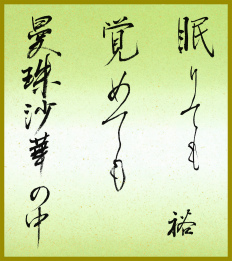 眠りても
覚めても
曼珠沙華の中
裕